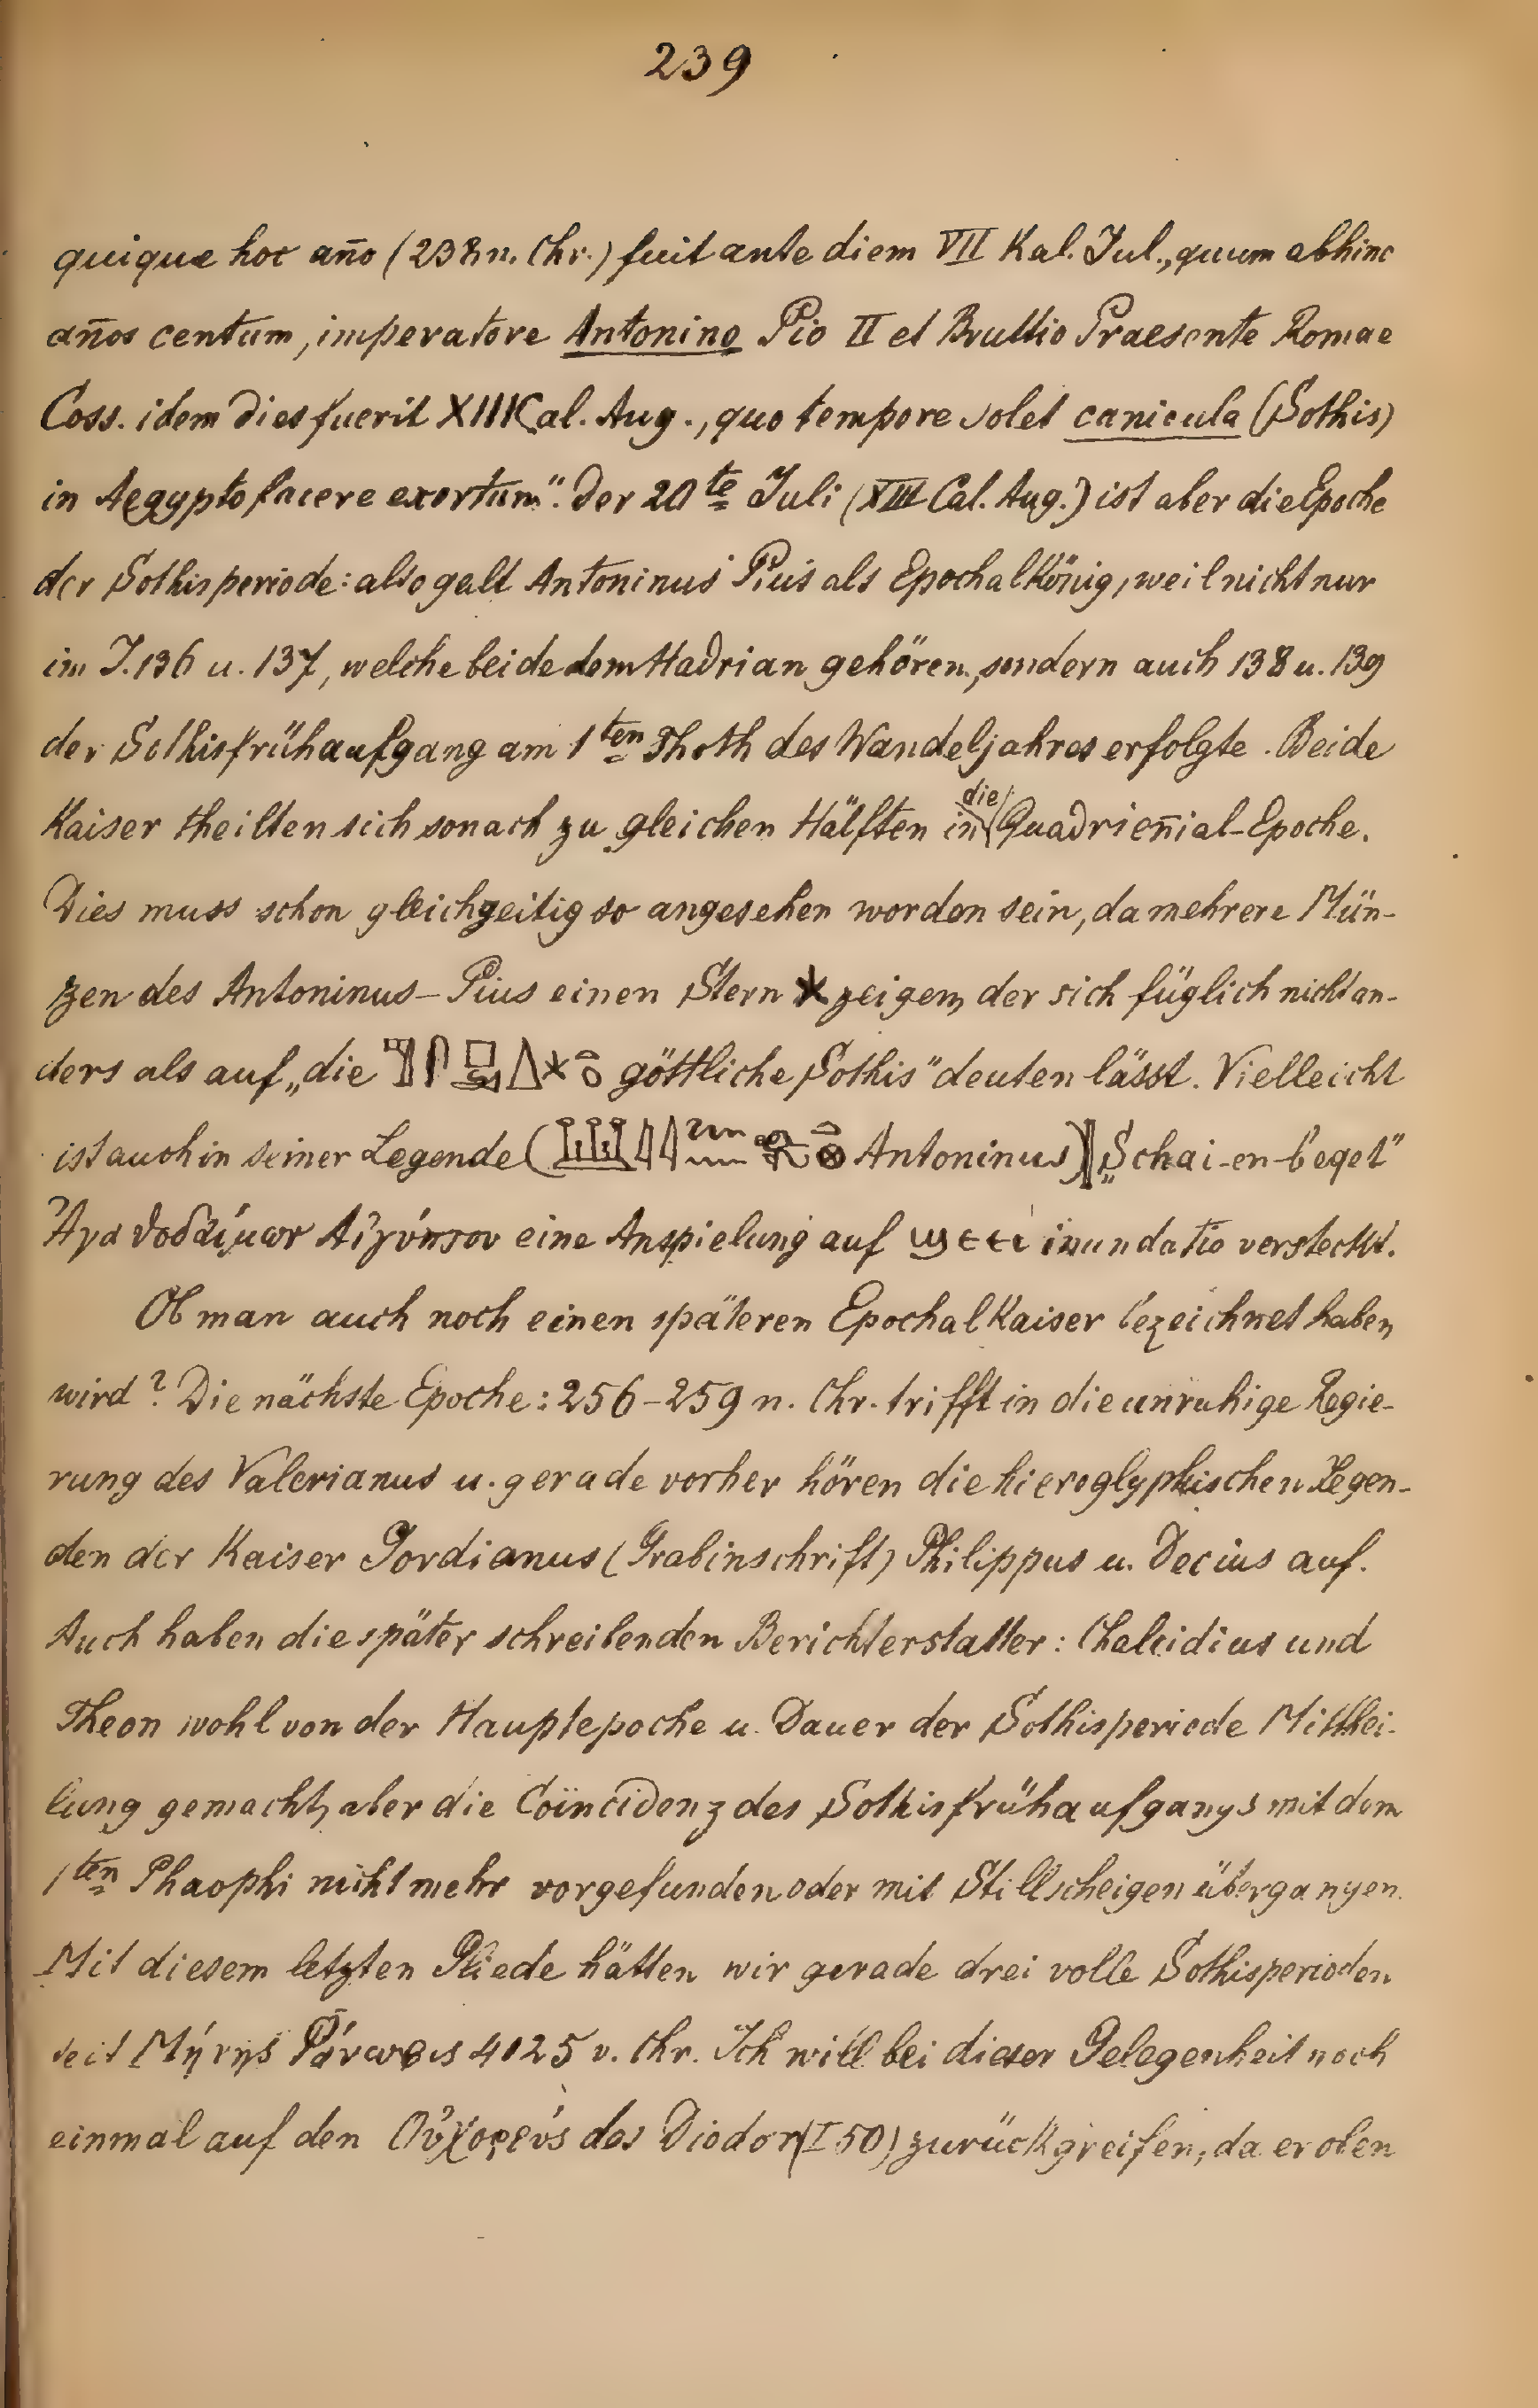 239
quique hoc año (238 n. Chr.) fuit ante diem VII Kal. Jul., quum abhinc
años centum, imperatore Antonino Pio II et Bruttio Praesente Romae
Coss. idem dies fuerit XIII Cal. Aug., quo tempore solet canicula (Sothis)
in Aegypto facere exortum". Der 20te Juli (XIII Cal. Aug.) ist aber die Epoche
der Sothisperiode: also galt Antoninus Pius als Epochalkönig, weil nicht nur
im J. 136 u. 137, welche beide dem Hadrian gehören, sondern auch 138 u. 139
der Sothisfrühaufgang am 1ten Thoth des Wandeljahres erfolgte. Beide
Kaiser theilten sich sonach zu gleichen Hälften in die Quadrien̄ial-Epoche.
Dies muss schon gleichzeitig so angesehen worden sein, da mehrere Mün-
zen des Antoninus-Pius einen Stern * zeigen, der sich füglich nicht an-
ders als auf „die göttliche Sothis" deuten lässt. Vielleicht
ist auch in seiner Legende ( Antoninus) „Schai-en-beqet"
eine Anspielung auf inundatio versteckt.
Ob man auch noch einen späteren Epochalkaiser bezeichnet haben
wird? Die nächste Epoche: 256-259 n. Chr. trifft in die unruhige Regie-
rung des Valerianus u. gerade vorher hören die hieroglyphischen Legen-
den der Kaiser Gordianus (Grabinschrift) Philippus u. Decius auf.
Auch haben die später schreibenden Berichterstatter: Chalcidius und
Theon wohl von der Hauptepoche u. Dauer der Sothisperiode Mitthei-
lung gemacht, aber die Coïncidenz des Sothisfrühaufgangs mit dem
1ten Phaophi nicht mehr vorgefunden oder mit Stillscheigen übergangen.
Mit diesem letzten Gliede hätten wir gerade drei volle Sothisperioden
seit 4125 v. Chr. Ich will bei dieser Gelegenheit noch
einmal auf den Οὐχορεύς des Diodor (I 50) zurückgreifen, da er oben